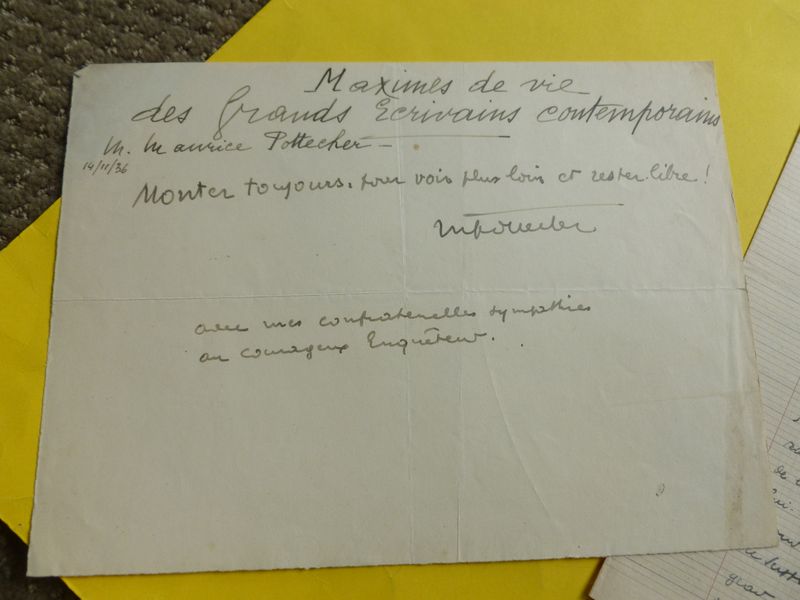 Maximes de vie
des Grands Ecrivains contemporains
M. Maurice Pottecher —
14/11/36
Monter toujours, pour voir plus loin et rester libre !
MPottecher
avec mes confraternelles sympathies
au courageux Enquêteur.
de